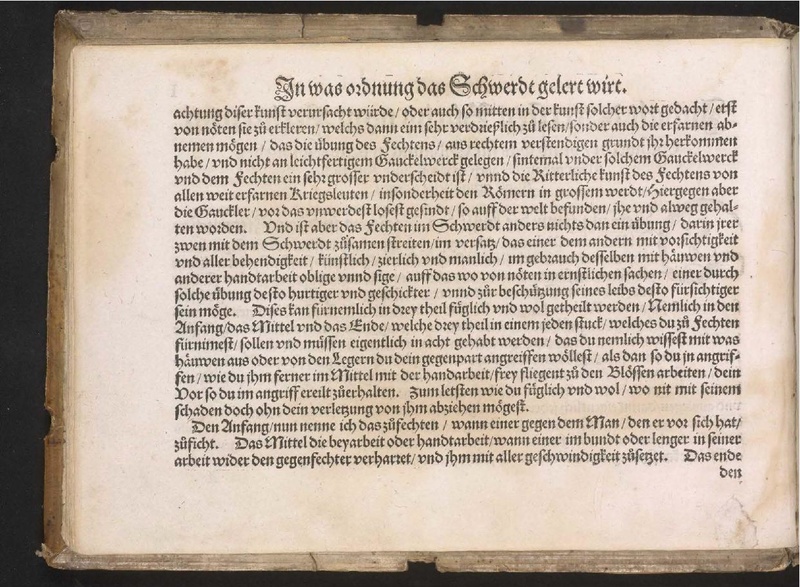 In was ordnung das Schwerdt gelert wirt.
achtung diser kunst verursacht würde / oder auch so mitten in der kunst solcher wort gedacht / erst
von nöten sie zů erkleren / welchs dann eim sehr verdrießlich zů lesen / sonder auch die erfarnen ab-
nemen mögen / das die übung des Fechtens / aus rechtem verstendigen grundt jhr herkommen
habe / vnd nicht an leichtfertigem Gauckelwerck gelegen / sintemal vnder solchem Gauckelwerck
vnd dem Fechten ein sehr grosser vnderscheidt ist / vnnd die Ritterliche kunst des Fechtens von
allen weit erfarnen Kriegsleuten / insonderheit den Römern in grossem werdt / Hiergegen aber
die Gauckler / vor das vnwerdest losest gesindt / so auff der welt befunden / jhe vnd alweg gehal-
ten worden. Vnd ist aber das Fechten im Schwerdt anders nichts dan ein übung / darin jrer
zwen mit dem Schwerdt zůsamen streiten / im versatz / das einer dem andern mit vorsichtigkeit
vnd aller behendigkeit / künstlich / zierlich vnd manlich / im gebrauch desselben mit häuwen vnd
anderer handtarbeit oblige vnnd sige / auff das wo von nöten in ernstlichen sachen / einer durch
solche übung desto hurtiger vnd geschickter / vnnd zůr beschützung seines leibs desto fürsichtiger
sein möge. Dises kan fürnemlich in drey theil füglich vnd wol getheilt werden / Nemlich in den
Anfang / das Mittel vnd das Ende / welche drey theil in einem jeden stuck / welches du zů Fechten
fürnimest / sollen vnd müssen eigentlich in acht gehabt werden / das du nemlich wissest mit was
häuwen aus oder von den Legern du dein gegenpart angreiffen wöllest / als dan so du in angrif-
fen / wie du jhm ferner im Mittel mit der handarbeit / frey fliegent zů den Blössen arbeiten / dein
Vor so du im angriff ereilt zůerhalten. Zum letsten wie du füglich vnd wol / wo nit mit seinem
schaden doch ohn dein verletzung von jhm abziehen mögest.
Den Anfang / nun nenne ich das zůfechten / wann einer gegen dem Man / den er vor sich hat /
zůficht. Das Mittel die beyarbeit oder handtarbeit / wann einer im bundt oder lenger in seiner
arbeit wider den gegenfechter verharret / vnd jhm mit aller geschwindigkeit zůsetzet. Das ende
den